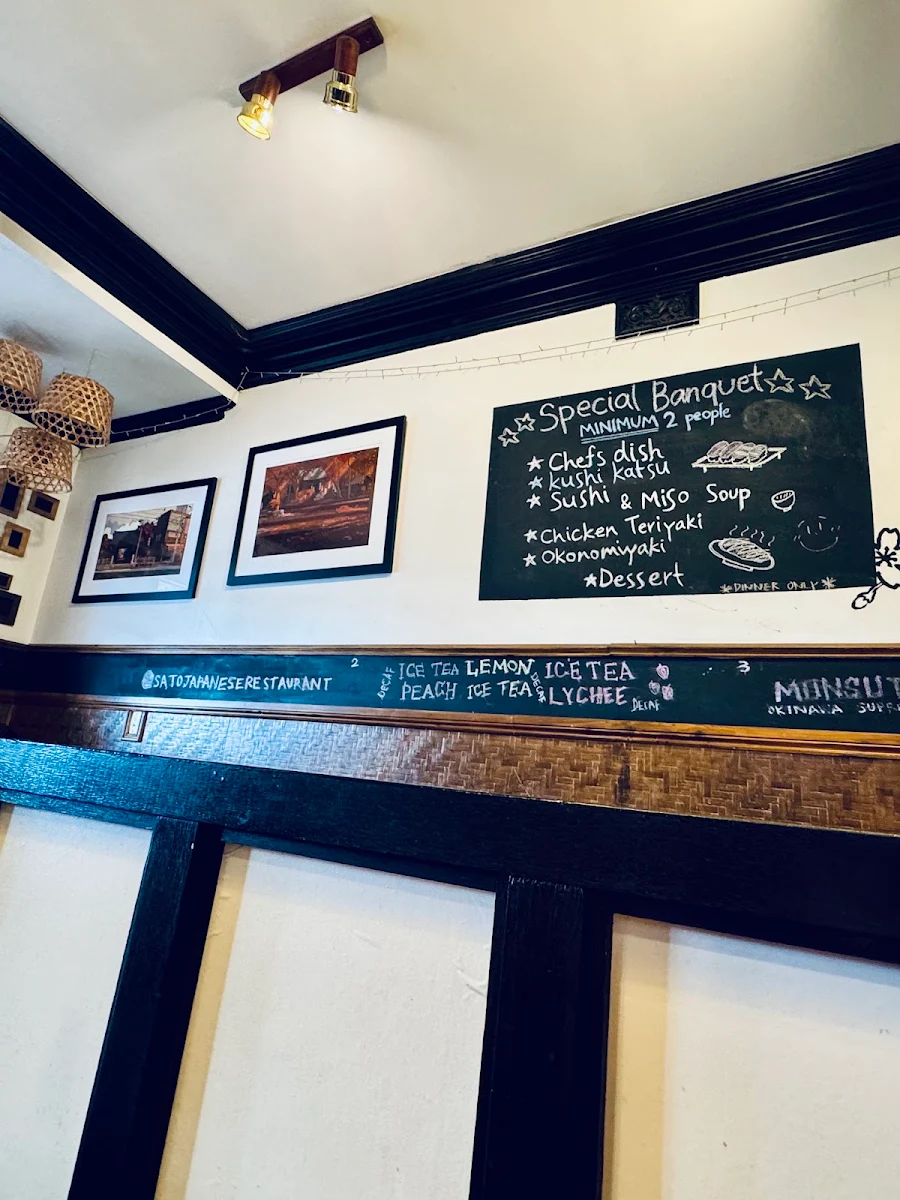 Special Banquet
MINIMUM 2 people
Chefs dish
kushi katsu
Sushi & Miso Soup
Chicken Teriyaki
Okonomiyaki
Dessert
*DINNER ONLY*
@SATOJAPANESERESTAURANT
2
DECAF
ICE TEA LEMON
PEACH ICE TEA
DECAF
ICE TEA
LYCHEE
DECAF
3
MONSUT
OKINAWA SUPR